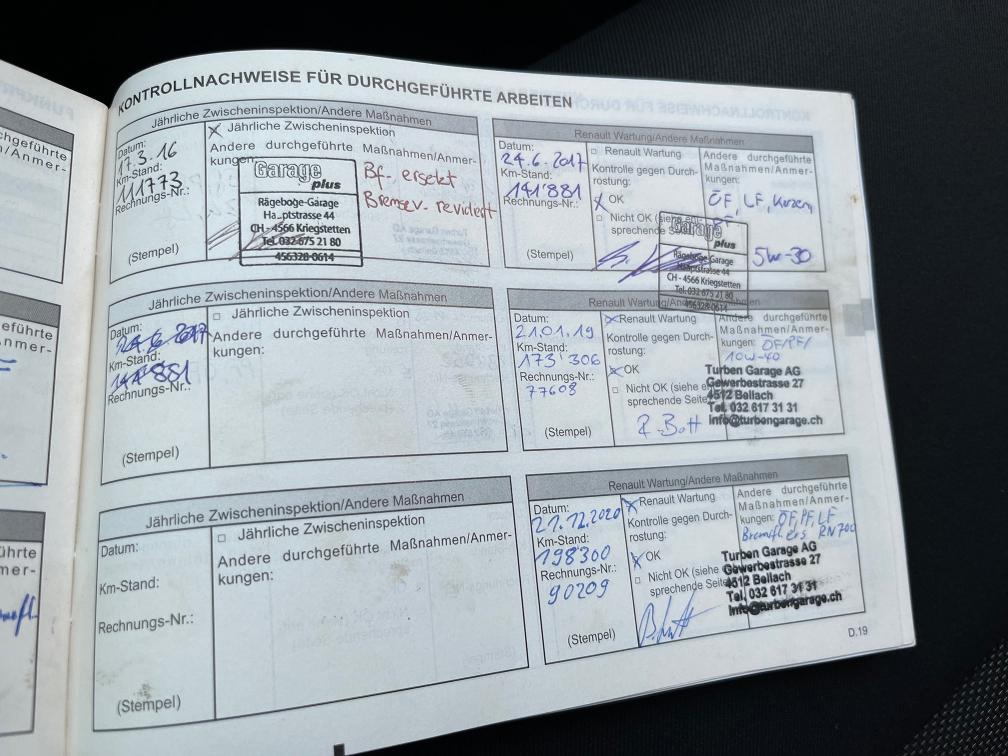 KONTROLLNACHWEISE FÜR DURCHGEFÜHRTE ARBEITEN
Jährliche Zwischeninspektion/Andere Maßnahmen
Datum:
17.3.16
Km-Stand:
111773
Rechnungs-Nr.:
(Stempel)
Jährliche Zwischeninspektion
Andere durchgeführte Maßnahmen/Anmer-
kungen:
Garage
plus
Rägeboge-Garage
Hauptstrasse 44
CH - 4566 Kriegstetten
Tel. 032 675 21 80
456328-0614
Bf. ersetzt
Bremsev. revidiert
Renault Wartung/Andere Maßnahmen
Datum:
24.6.2017
Km-Stand:
141'881
Rechnungs-Nr.:
(Stempel)
Renault Wartung
Kontrolle gegen Durch-
rostung:
OK
Nicht OK (siehe ent-
sprechende Seite
Andere durchgeführte
Maßnahmen/Anmer-
kungen:
ÖF, LF,
5W-30
Garage
plus
Rägeboge Garage
Hauptstrasse 44
CH - 4566 Kriegstetten
Tel. 032 675 21 80
456328-0614
Jährliche Zwischeninspektion/Andere Maßnahmen
Datum:
24.6.2017
Km-Stand:
141'881
Rechnungs-Nr.:
(Stempel)
Jährliche Zwischeninspektion
Andere durchgeführte Maßnahmen/Anmer-
kungen:
Renault Wartung/Andere Maßnahmen
Datum:
21.01.19
Km-Stand:
173'306
Rechnungs-Nr.:
77608
(Stempel)
Renault Wartung
Kontrolle gegen Durch-
rostung:
OK
Nicht OK (siehe
sprechende Seite
Andere durchgeführte
Maßnahmen/Anmer-
kungen: ÖF/PF/
10W-40
Turben Garage AG
Gewerbestrasse 27
4512 Bellach
Tel. 032 617 31 31
info@turbengarage.ch
Jährliche Zwischeninspektion/Andere Maßnahmen
Datum:
Km-Stand:
Rechnungs-Nr.:
(Stempel)
Jährliche Zwischeninspektion
Andere durchgeführte Maßnahmen/Anmer-
kungen:
Renault Wartung/Andere Maßnahmen
Datum:
21.12.2020
Km-Stand:
198300
Rechnungs-Nr.:
90209
(Stempel)
Renault Wartung
Kontrolle gegen Durch-
rostung:
OK
Nicht OK (siehe
sprechende Seite
Andere durchgeführte
Maßnahmen/Anmer-
kungen: ÖF, PF, LF
Bremsfl. ers RN700
Turben Garage AG
Gewerbestrasse 27
4512 Bellach
Tel. 032 617 31 31
info@turbengarage.ch
D.19